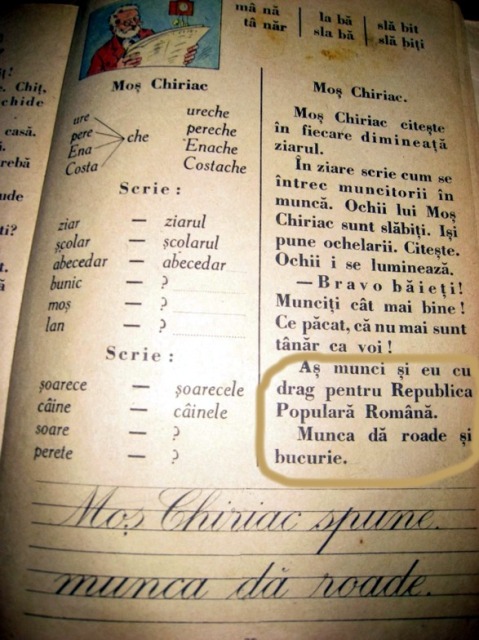 mâ nă
tâ năr
la bă
sla bă
slă bit
slă biți
Chiț,
chide
casă.
rebă
ude
ti?
Moș Chiriac
ure
pere
Ena
Costa
che
ureche
pereche
Enache
Costache
Scrie :
ziar — ziarul
școlar — școlarul
abecedar — abecedar
bunic — ?
moș — ?
lan — ?
Scrie :
șoarece — șoarecele
câine — câinele
soare — ?
perete — ?
Moș Chiriac.
Moș Chiriac citește
în fiecare dimineață
ziarul.
În ziare scrie cum se
întrec muncitorii în
muncă. Ochii lui Moș
Chiriac sunt slăbiți. Iși
pune ochelarii. Citește.
Ochii i se luminează.
— Bravo băieți!
Munciți cât mai bine !
Ce păcat, că nu mai sunt
tânăr ca voi !
Aș munci și eu cu
drag pentru Republica
Populară Română.
Munca dă roade și
bucurie.
Moș Chiriac spune.
munca dă roade.